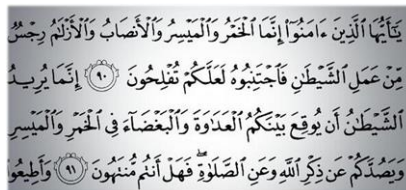 يَٰٓأَيُّهَا ٱلَّذِينَ ءَامَنُوٓا۟ إِنَّمَا ٱلْخَمْرُ وَٱلْمَيْسِرُ وَٱلْأَنصَابُ وَٱلْأَزْلَٰمُ رِجْسٌ
مِّنْ عَمَلِ ٱلشَّيْطَٰنِ فَٱجْتَنِبُوهُ لَعَلَّكُمْ تُفْلِحُونَ ٩٠ إِنَّمَا يُرِيدُ
ٱلشَّيْطَٰنُ أَن يُوقِعَ بَيْنَكُمُ ٱلْعَدَٰوَةَ وَٱلْبَغْضَآءَ فِى ٱلْخَمْرِ وَٱلْمَيْسِرِ
وَيَصُدَّكُمْ عَن ذِكْرِ ٱللَّهِ وَعَنِ ٱلصَّلَوٰةِ ۖ فَهَلْ أَنتُم مُّنتَهُونَ ٩١ وَأَطِيعُوا۟